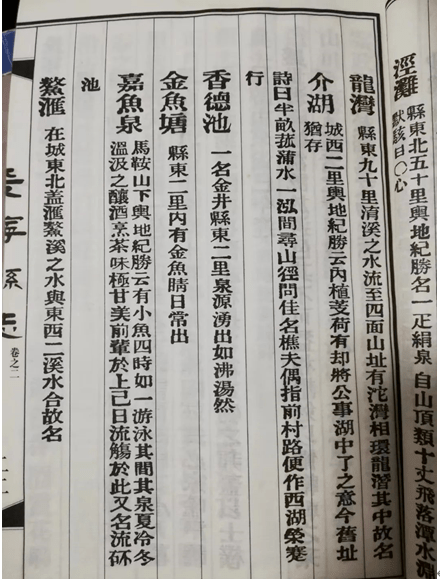 涇灘 縣東北五十里輿地紀勝名一疋絹泉 自山頂類十丈飛落潭水
默該日〇心
龍灣 縣東九十里清溪之水流至四面山址有沱灣相環龍潛其中故名
介湖 城西二里輿地紀勝云內植芰荷有却將公事湖中了之意今舊址
猶存
詩曰半畝菰蒲水一泓間尋山徑問住名樵夫偶指前村路便作西湖縈寔
行
香德池 一名金井縣東二里泉源湧出如沸湯然
金魚塘 縣東二里內有金魚睛日常出
嘉魚泉 馬鞍山下輿地紀勝云有小魚四時如一游泳其間其泉夏冷冬
溫汲之釀酒烹茶味極甘美前輩於上己日流觴於此又名流砅
池
鰲滙 在城東北盖滙鰲溪之水與東西二溪水合故名
卷之二